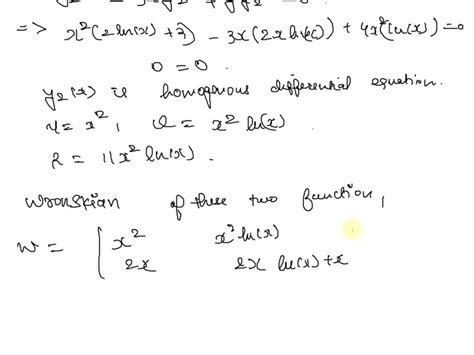 => x²(2ln(x)+3) - 3x(2x ln(x)) + 4x²(ln(x)=0
0 = 0.
y₂(x) is homogenous differential equation.
y = x², u = x² ln(x)
R = 11x² ln(x).
Wronskian of these two function,
w = | x² x² ln(x)
2x 2x ln(x)+x